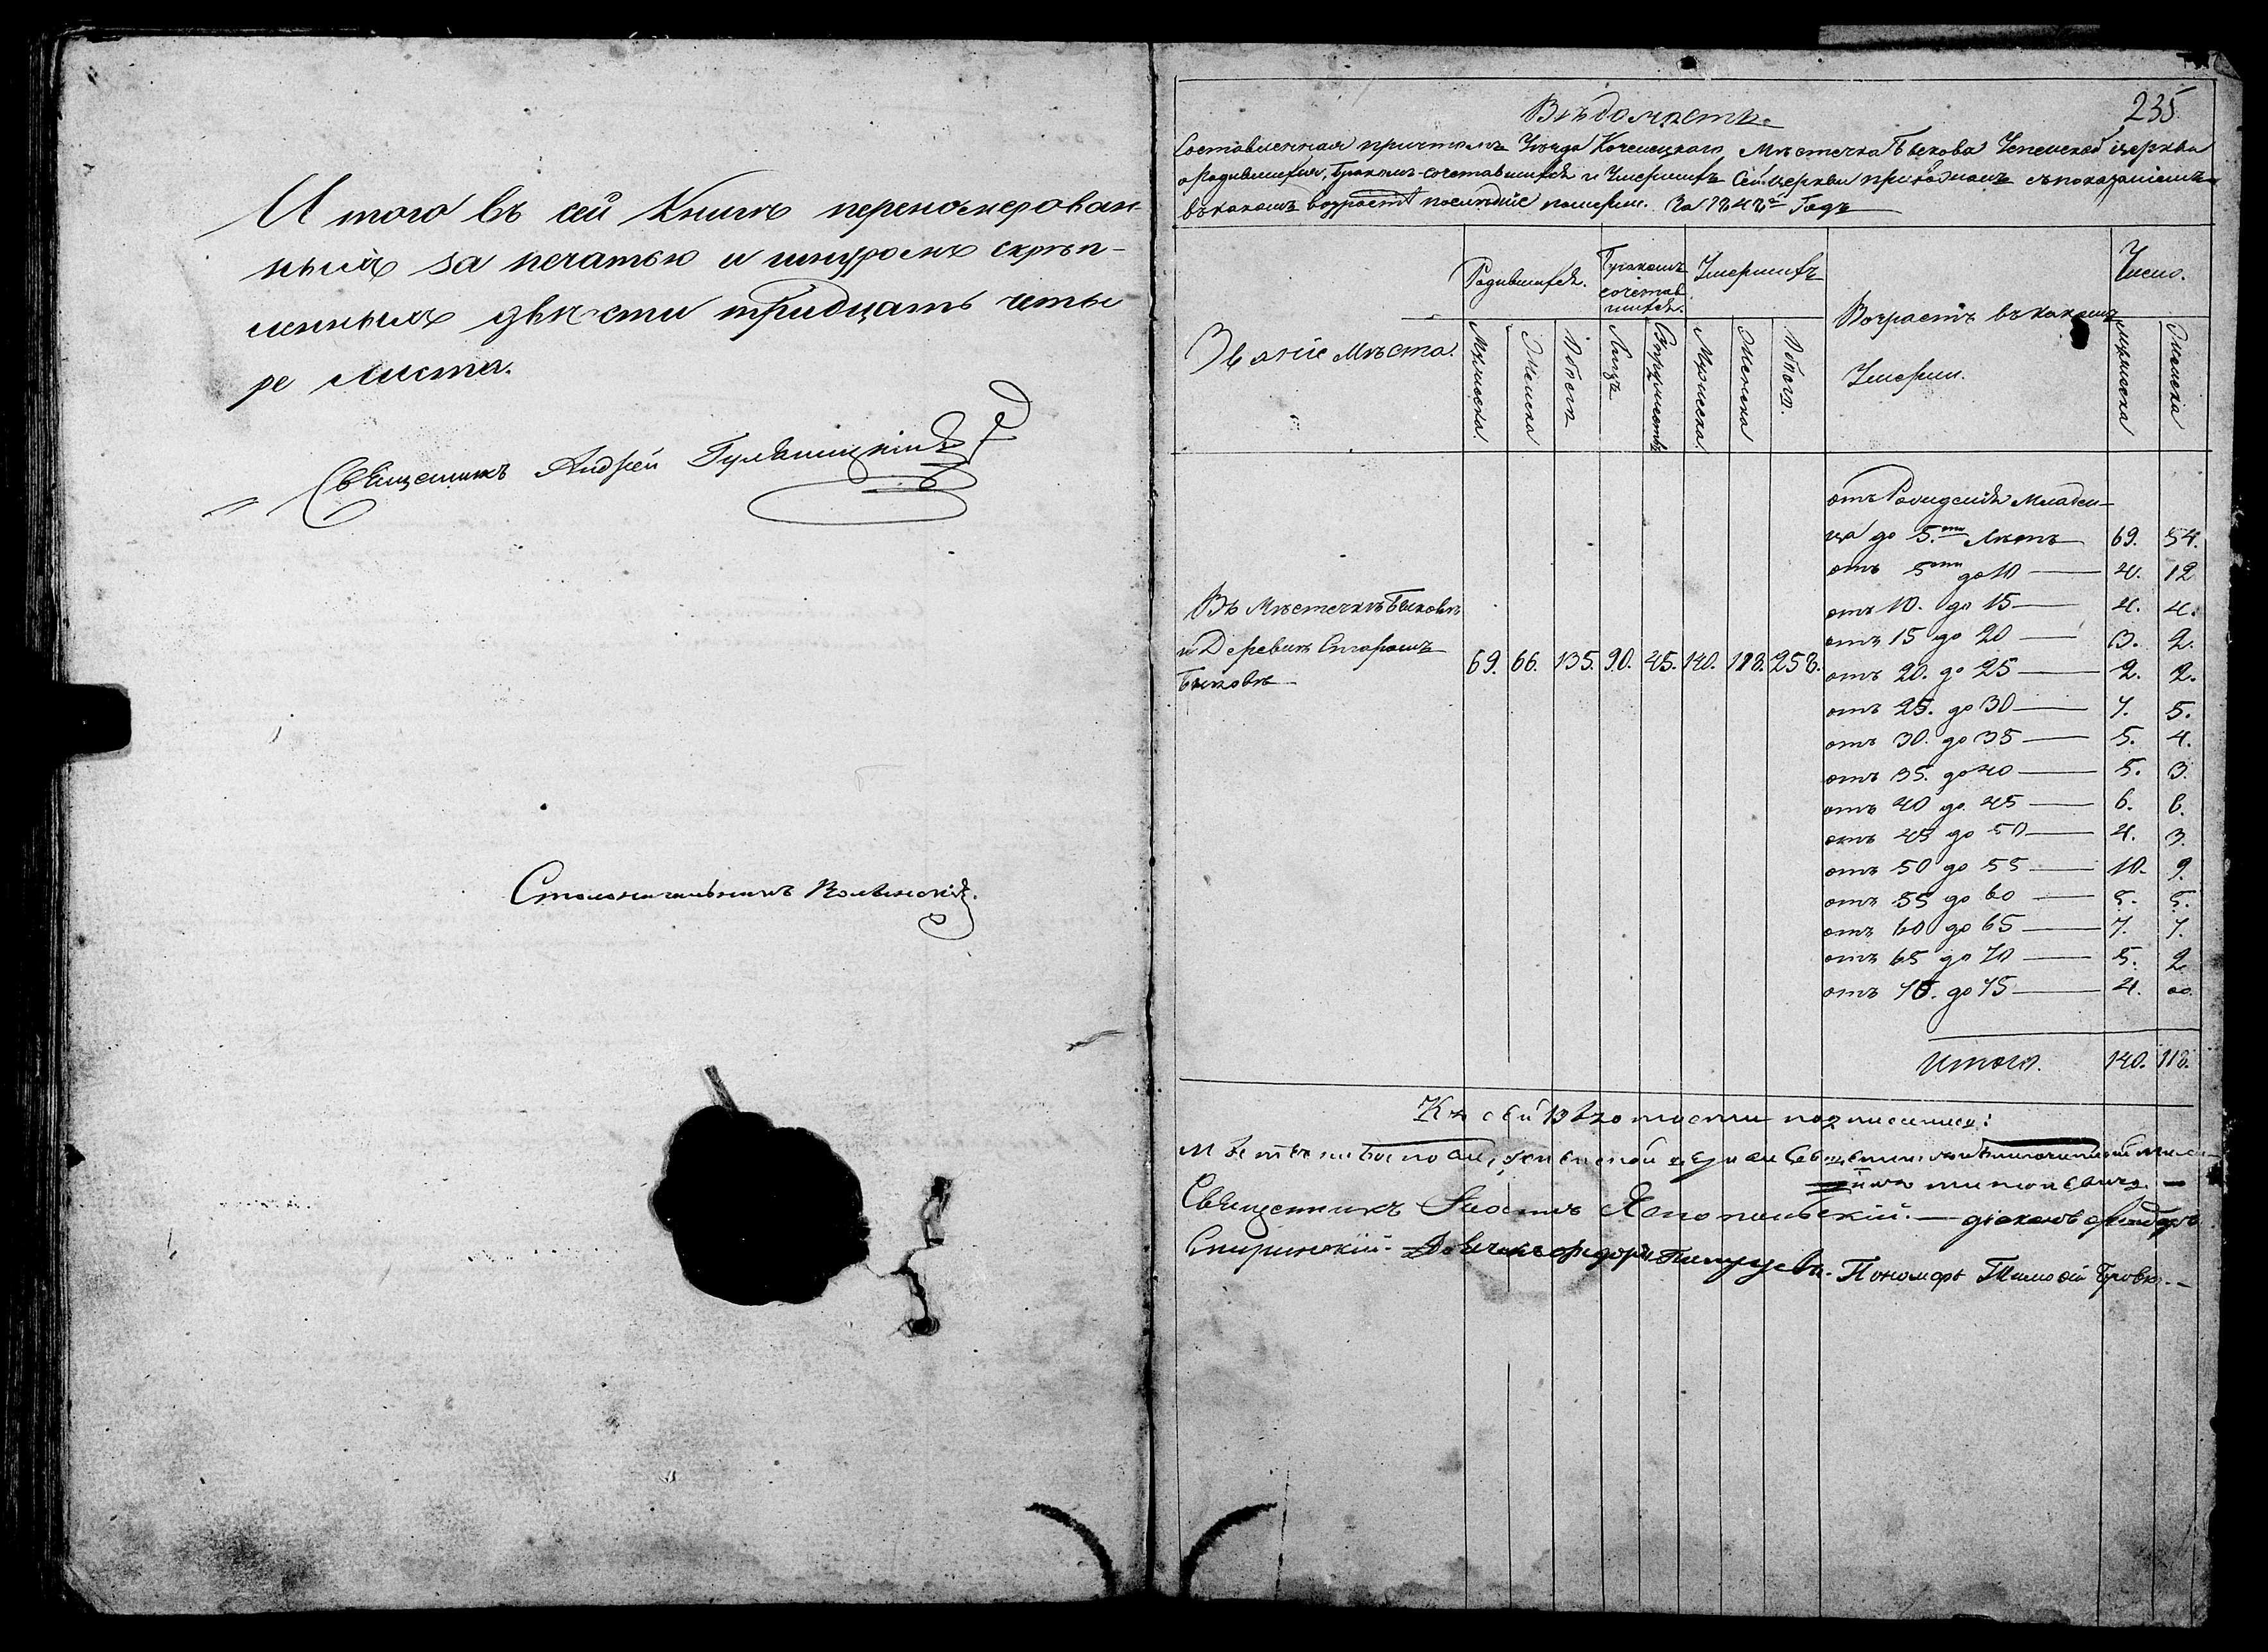 Итого въ сей Книгѣ переномерован-
ныхъ за печатью и шнуромъ скрѣп-
ленныхъ двѣсти тридцать четы
ре листа.
Священникъ Андрей
Столоначальникъ Волынскій.
235
Вѣдомость
Составленная причтомъ Уѣзда Козелецкаго Мѣстечка Быкова Успенской церкви
о Родившихся, Бракомъ сочетавшихся и Умершихъ Сей церкви прихожанъ съ показаніемъ
въ какомъ возрастѣ послѣдніе померли. За 1848й Годъ
Званіе Мѣста.
Родившихся.
Бракомъ
сочетав
шихся.
Умершихъ
Возрастъ въ какомъ
Умерли.
Число.
Мужеска.
Женска
Обоего
Лицъ
Супружествъ
Мужеска
Женска
Обоего.
Мужеска
Женска
отъ Рожденія Младен-
ца до 5.ти Лѣтъ 69. 54.
отъ 5ти до 10 4. 12
отъ 10. до 15 4. 4.
отъ 15 до 20 3. 2.
отъ 20. до 25 2. 2.
отъ 25. до 30 7. 5.
отъ 30. до 35 5. 4.
отъ 35. до 40 5. 3.
отъ 40 до 45 6. 6.
отъ 45 до 50 4. 3.
отъ 50 до 55 10. 9.
отъ 55 до 60 5. 5.
отъ 60 до 65 7. 7.
отъ 65 до 70 5. 2
отъ 70. до 75 4. 00.
Въ Мѣстечкѣ Быковѣ
и Деревнѣ Старомъ
Быковѣ
69. 66. 135. 90. 45. 140. 118. 258.
Итого. 140. 118.
Къ сей Вѣдомости подписались:
Священникъ діаконъ
Пономарь